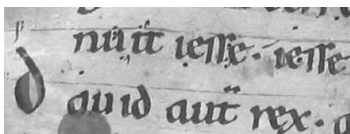 nuit iesse. iesse
dauid aut rex.